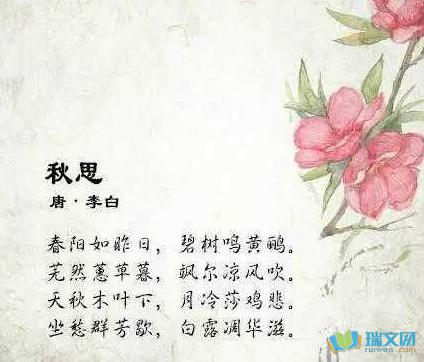 秋思
唐·李白
春阳如昨日，碧树鸣黄鹂。
芜然蕙草暮，飒尔凉风吹。
天秋木叶下，月冷莎鸡悲。
坐愁群芳歇，白露凋华滋。
瑞文网
ruiwen.com